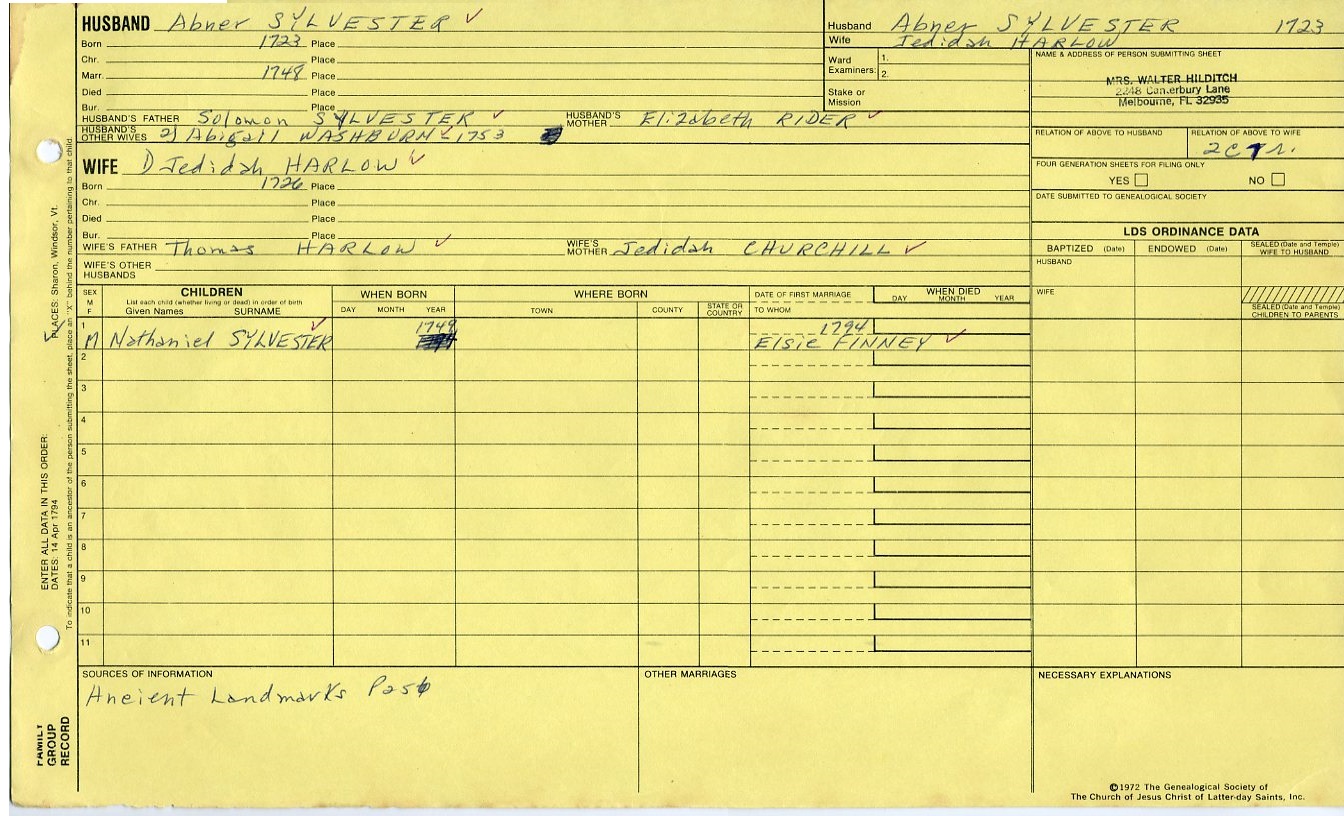 HUSBAND Abner SYLVESTER ✓
Born 1723 Place
Chr. Place
Marr. 1748 Place
Died Place
Bur. Place
HUSBAND'S FATHER Solomon SYLVESTER ✓ HUSBAND'S MOTHER Elizabeth RIDER ✓
HUSBAND'S OTHER WIVES 2) Abigail WASHBURN ✓ 1753
WIFE 1) Jedidah HARLOW ✓
Born 1726 Place
Chr. Place
Died Place
Bur. Place
WIFE'S FATHER Thomas HARLOW ✓ WIFE'S MOTHER Jedidah CHURCHILL ✓
WIFE'S OTHER HUSBANDS
Husband Abner SYLVESTER 1723
Wife Jedidah HARLOW
Ward Examiners: 1.
2.
Stake or Mission
NAME & ADDRESS OF PERSON SUBMITTING SHEET
MRS. WALTER HILDITCH
2248 Canterbury Lane
Melbourne, FL 32935
RELATION OF ABOVE TO HUSBAND RELATION OF ABOVE TO WIFE
FOUR GENERATION SHEETS FOR FILING ONLY
YES □ NO □
DATE SUBMITTED TO GENEALOGICAL SOCIETY
LDS ORDINANCE DATA
BAPTIZED (Date) ENDOWED (Date) SEALED (Date and Temple) WIFE TO HUSBAND
HUSBAND
WIFE
SEALED (Date and Temple) CHILDREN TO PARENTS
SEX M F CHILDREN WHEN BORN WHERE BORN DATE OF FIRST MARRIAGE WHEN DIED
List each child (whether living or dead) in order of birth
Given Names SURNAME DAY MONTH YEAR TOWN COUNTY STATE OR COUNTRY TO WHOM DAY MONTH YEAR
1 1749 1794
M Nathaniel SYLVESTER ✓ Elsie FINNEY ✓
2
3
4
5
6
7
8
9
10
11
SOURCES OF INFORMATION OTHER MARRIAGES NECESSARY EXPLANATIONS
Ancient Landmarks
©1972 The Genealogical Society of
The Church of Jesus Christ of Latter-day Saints, Inc.
FAMILY GROUP RECORD
ENTER ALL DATA IN THIS ORDER:
DATES: 14 Apr 1794
PLACES: Sharon, Windsor, Vt.
To indicate that a child is an ancestor of the person submitting the sheet, place an "X" behind the number pertaining to that child.